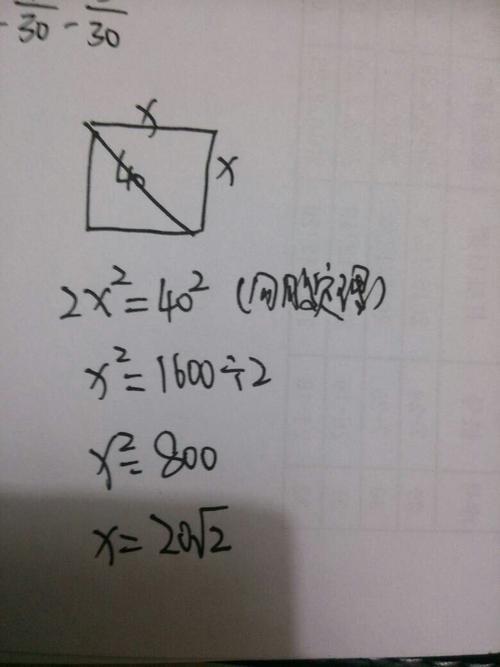 30 - 30
x
x
40
2x²=40² (勾股定理)
x²=1600÷2
x²=800
x=20√2